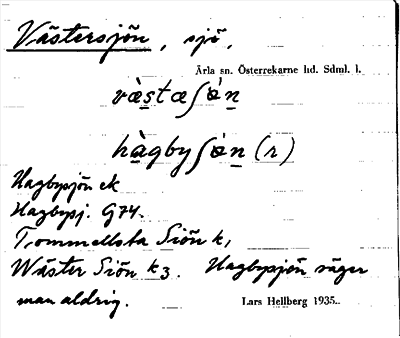 Västersjön, sjö,
Ärla sn. Österrekarne hd. Sdml. l.
vàstæʃǿn
hàgbyʃǿn (r)
Hagbysjön ek
Hagbysj. G74.
Trommellsta Siön k,
Wäster Siön k3. Hagbysjön säger
man aldrig.
Lars Hellberg 1935.